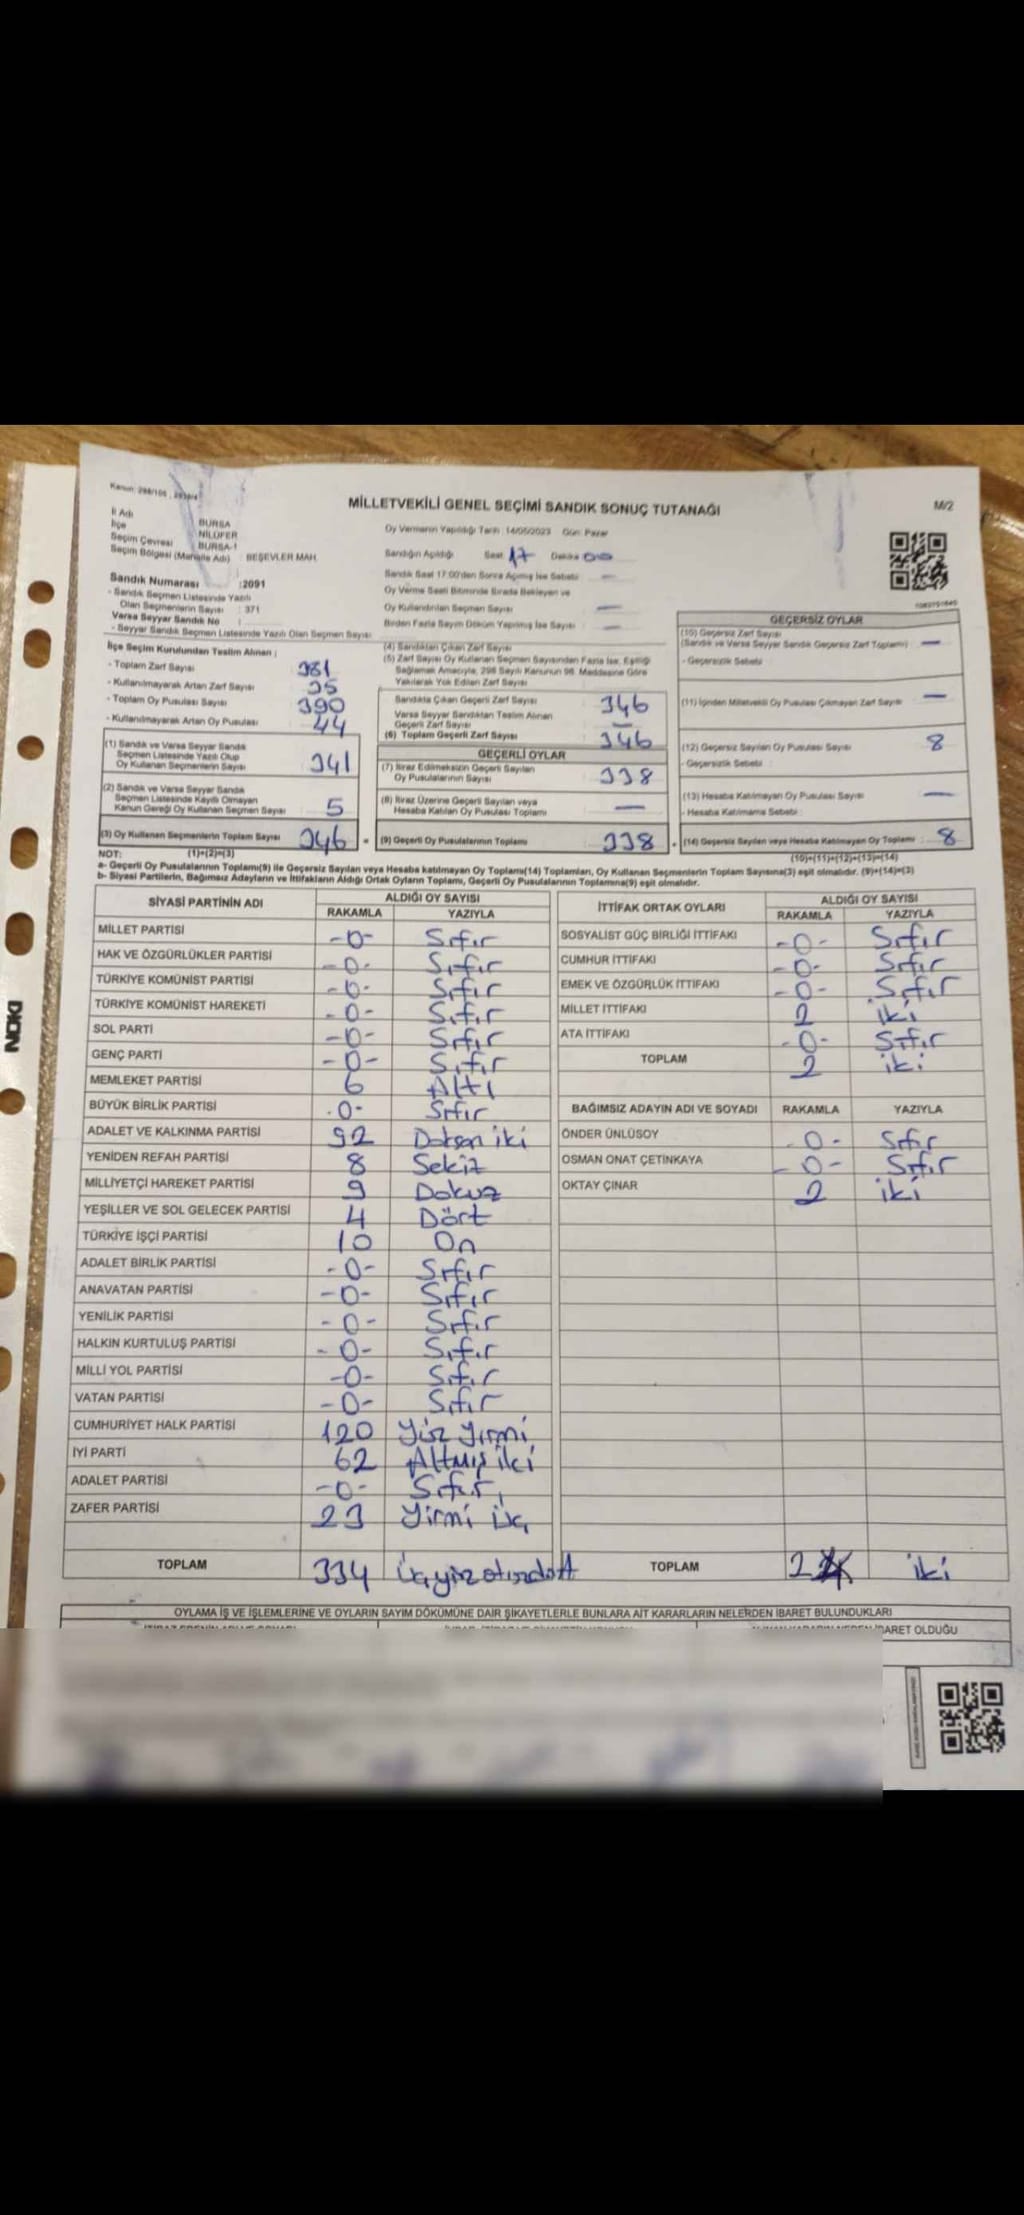 Kanun: 298/105 , 2839/4
MİLLETVEKİLİ GENEL SEÇİMİ SANDIK SONUÇ TUTANAĞI
M/2
İl Adı BURSA
İlçe NİLÜFER
Seçim Çevresi BURSA-1
Seçim Bölgesi (Mahalle Adı) : BEŞEVLER MAH.
Oy Vermenin Yapıldığı Tarih : 14/05/2023 Gün: Pazar
Sandığın Açıldığı Saat 17 Dakika 00
Sandık Saat 17:00'den Sonra Açılmış İse Sebebi —
Oy Verme Saati Bitiminde Sırada Bekleyen ve
Oy Kullandırılan Seçmen Sayısı —
Birden Fazla Sayım Döküm Yapılmış İse Sayısı : —
Sandık Numarası :2091
- Sandık Seçmen Listesinde Yazılı
Olan Seçmenlerin Sayısı : 371
Varsa Seyyar Sandık No :
- Seyyar Sandık Seçmen Listesinde Yazılı Olan Seçmen Sayısı:
İlçe Seçim Kurulundan Teslim Alınan ;
- Toplam Zarf Sayısı 381
- Kullanılmayarak Artan Zarf Sayısı 35
- Toplam Oy Pusulası Sayısı 390
- Kullanılmayarak Artan Oy Pusulası 44
(1) Sandık ve Varsa Seyyar Sandık
Seçmen Listesinde Yazılı Olup
Oy Kullanan Seçmenlerin Sayısı 341
(2) Sandık ve Varsa Seyyar Sandık
Seçmen Listesinde Kayıtlı Olmayan
Kanun Gereği Oy Kullanan Seçmen Sayısı 5
(3) Oy Kullanan Seçmenlerin Toplam Sayısı 346 =
(1)+(2)=(3)
(4) Sandıktan Çıkan Zarf Sayısı
(5) Zarf Sayısı Oy Kullanan Seçmen Sayısından Fazla İse, Eşitliği
Sağlamak Amacıyla, 298 Sayılı Kanunun 98. Maddesine Göre
Yakılarak Yok Edilen Zarf Sayısı
Sandıkta Çıkan Geçerli Zarf Sayısı 346
Varsa Seyyar Sandıktan Teslim Alınan
Geçerli Zarf Sayısı —
(6) Toplam Geçerli Zarf Sayısı 346
GEÇERLİ OYLAR
(7) İtiraz Edilmeksizin Geçerli Sayılan
Oy Pusulalarının Sayısı 338
(8) İtiraz Üzerine Geçerli Sayılan veya
Hesaba Katılan Oy Pusulası Toplamı —
(9) Geçerli Oy Pusulalarının Toplamı 338 +
GEÇERSİZ OYLAR
(10) Geçersiz Zarf Sayısı
(Sandık ve Varsa Seyyar Sandık Geçersiz Zarf Toplamı) —
- Geçersizlik Sebebi
(11) İçinden Milletvekili Oy Pusulası Çıkmayan Zarf Sayısı —
(12) Geçersiz Sayılan Oy Pusulası Sayısı 8
- Geçersizlik Sebebi :
(13) Hesaba Katılmayan Oy Pusulası Sayısı —
- Hesaba Katılmama Sebebi
(14) Geçersiz Sayılan veya Hesaba Katılmayan Oy Toplamı : 8
(10)+(11)+(12)+(13)=(14)
NOT:
a- Geçerli Oy Pusulalarının Toplamı(9) ile Geçersiz Sayılan veya Hesaba katılmayan Oy Toplamı(14) Toplamları, Oy Kullanan Seçmenlerin Toplam Sayısına(3) eşit olmalıdır. (9)+(14)=(3)
b- Siyasi Partilerin, Bağımsız Adayların ve İttifakların Aldığı Ortak Oyların Toplamı, Geçerli Oy Pusulalarının Toplamına(9) eşit olmalıdır.
SİYASİ PARTİNİN ADI ALDIĞI OY SAYISI
RAKAMLA YAZIYLA
MİLLET PARTİSİ -0- Sıfır
HAK VE ÖZGÜRLÜKLER PARTİSİ -0- Sıfır
TÜRKİYE KOMÜNİST PARTİSİ -0- Sıfır
TÜRKİYE KOMÜNİST HAREKETİ -0- Sıfır
SOL PARTİ -0- Sıfır
GENÇ PARTİ -0- Sıfır
MEMLEKET PARTİSİ 6 Altı
BÜYÜK BİRLİK PARTİSİ -0- Sıfır
ADALET VE KALKINMA PARTİSİ 92 Doksan iki
YENİDEN REFAH PARTİSİ 8 Sekiz
MİLLİYETÇİ HAREKET PARTİSİ 9 Dokuz
YEŞİLLER VE SOL GELECEK PARTİSİ 4 Dört
TÜRKİYE İŞÇİ PARTİSİ 10 On
ADALET BİRLİK PARTİSİ -0- Sıfır
ANAVATAN PARTİSİ -0- Sıfır
YENİLİK PARTİSİ -0- Sıfır
HALKIN KURTULUŞ PARTİSİ -0- Sıfır
MİLLİ YOL PARTİSİ -0- Sıfır
VATAN PARTİSİ -0- Sıfır
CUMHURİYET HALK PARTİSİ 120 Yüz Yirmi
İYİ PARTİ 62 Altmış iki
ADALET PARTİSİ -0- Sıfır
ZAFER PARTİSİ 23 Yirmi üç
TOPLAM 334 Üçyüzotuzdört
İTTİFAK ORTAK OYLARI ALDIĞI OY SAYISI
RAKAMLA YAZIYLA
SOSYALİST GÜÇ BİRLİĞİ İTTİFAKI -0- Sıfır
CUMHUR İTTİFAKI -0- Sıfır
EMEK VE ÖZGÜRLÜK İTTİFAKI -0- Sıfır
MİLLET İTTİFAKI 2 iki
ATA İTTİFAKI -0- Sıfır
TOPLAM 2 iki
BAĞIMSIZ ADAYIN ADI VE SOYADI RAKAMLA YAZIYLA
ÖNDER ÜNLÜSOY -0- Sıfır
OSMAN ONAT ÇETİNKAYA -0- Sıfır
OKTAY ÇINAR 2 iki
TOPLAM 2 iki
OYLAMA İŞ VE İŞLEMLERİNE VE OYLARIN SAYIM DÖKÜMÜNE DAİR ŞİKAYETLERLE BUNLARA AİT KARARLARIN NELERDEN İBARET BULUNDUKLARI
İBARET OLDUĞU
NOKI